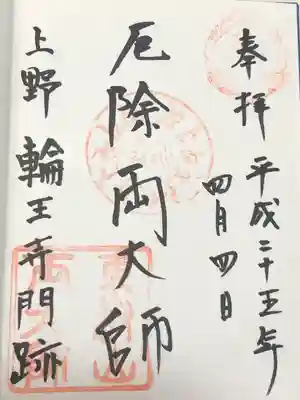 奉拝
平成二十五年
四月四日
厄除両大師
上野輪王寺門跡